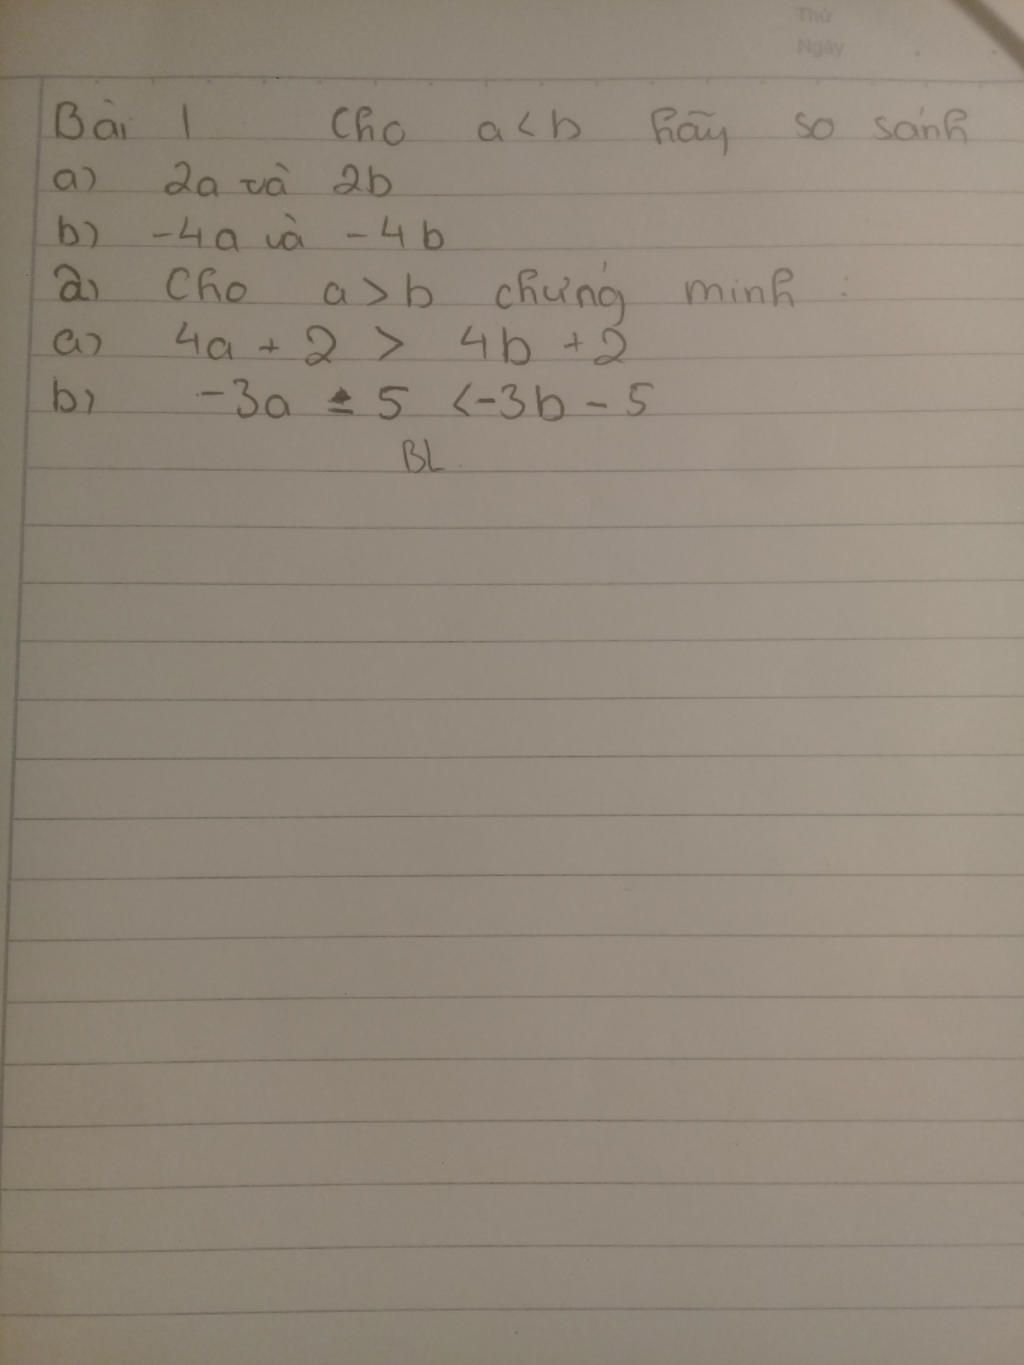 Thứ
Ngày
Bài 1 Cho a < b hãy so sánh
a) 2a và 2b
b) -4a và -4b
2) Cho a > b chứng minh :
a) 4a + 2 > 4b + 2
b) -3a - 5 < -3b - 5
BL